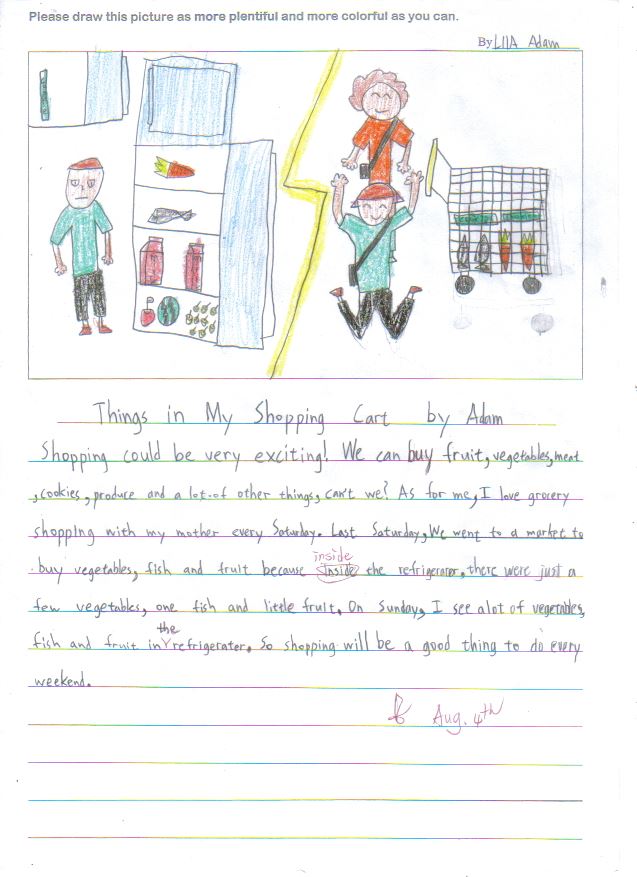 Please draw this picture as more plentiful and more colorful as you can.
By LIIA Adam
Things in My Shopping Cart by Adam
Shopping could be very exciting! We can buy fruit, vegetables, meat
, cookies, produce and a lot of other things, can't we? As for me, I love grocery
shopping with my mother every Saturday. Last Saturday, We went to a market to
buy vegetables, fish and fruit because inside Inside the refrigerator, there were just a
few vegetables, one fish and little fruit. On Sunday, I see alot of vegetables,
fish and fruit in the refrigerater. So shopping will be a good thing to do every
weekend.
Aug. 4th